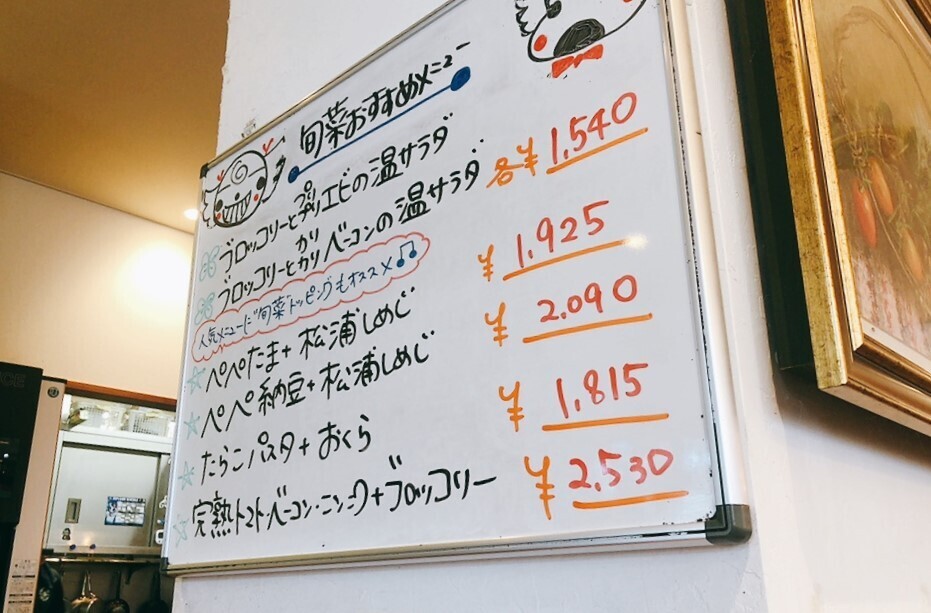 旬菜おすすめメニュー
ブロッコリーとプリプリエビの温サラダ
ブロッコリーとカリカリベーコンの温サラダ 各¥1,540
人気メニューに"旬菜"トッピングもオススメ♫
ペペたま+松浦しめじ ¥1.925
ペペ納豆+松浦しめじ ¥2.090
たらこパスタ+おくら ¥1,815
完熟トマト・ベーコン・ニンニク+ブロッコリー ¥2,530